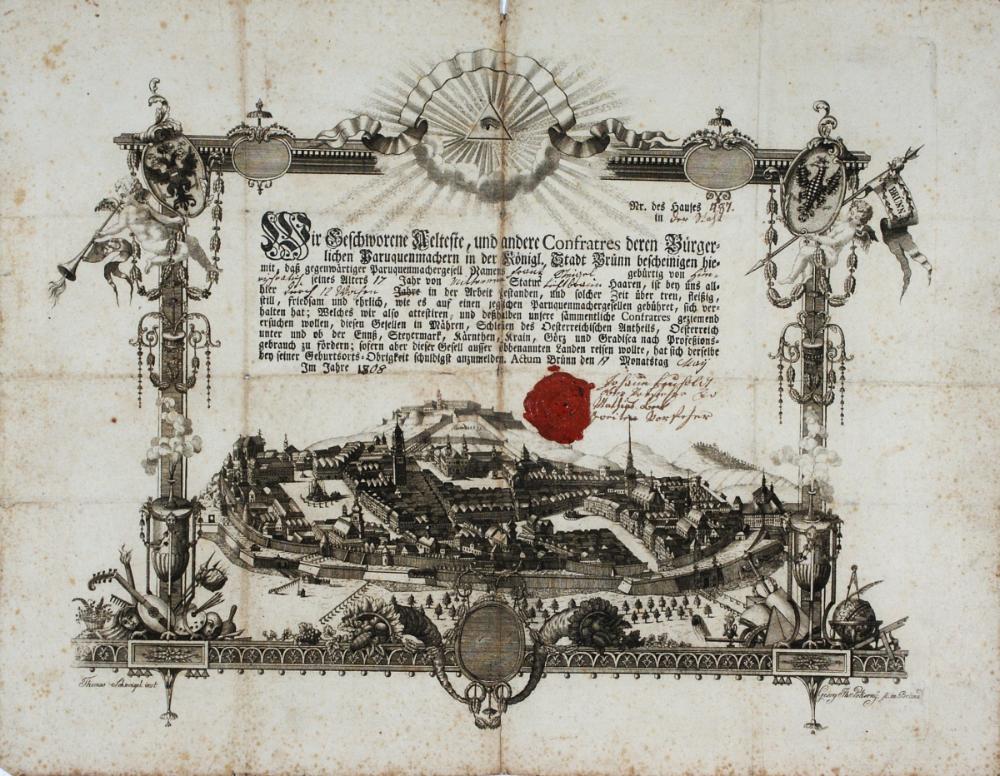 BRÜNN
Nr. des Hauses 487.
in der Stadt
Wir Geschworene Aelteste, und andere Confratres deren Bürger-
lichen Paruquenmachern in der Königl. Stadt Brünn bescheinigen hie-
mit, daß gegenwärtiger Paruquenmachergesell Namens Franz gebürtig von
seines Alters 17 Jahr von Statur Haaren, ist bey uns all-
hier durch 12 Wochen Jahre in der Arbeit gestanden, und solcher Zeit über treu, fleißig,
still, friedsam und ehrlich, wie es auf einen jeglichen Paruquenmachergesellen gebühret, sich ver-
halten hat; Welches wir also attestiren, und deßhalben unsere sämmentliche Confratres geziemend
ersuchen wollen, diesen Gesellen in Mähren, Schlesien des Oesterreichischen Antheils, Oesterreich
unter und ob der Ennß, Steyermark, Kärnthen, Krain, Görz und Gradisca nach Profeßions-
gebrauch zu fördern; sofern aber dieser Gesell ausser obbenannten Landen reisen wollte, hat sich derselbe
bey seiner Geburtsorts-Obrigkeit schuldigst anzumelden. Actum Brünn den 17 Monatstag May
Im Jahre 1808
Johann
Mathias
zweiter Vorsteher
Thomas Schweigl inv.
Georg Th. Pokorný, sc. in Brünn